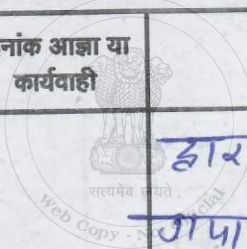 नांक आज्ञा या
कार्यवाही
द्वार
सत्यमेव जयते
Web Copy - Not Official